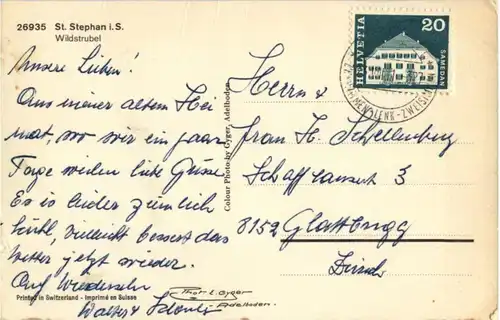 26935 St. Stephan i.S.
Wildstrubel
Unsere Lieben!
Aus meiner alten Hei
mat, wo wir ein paar
Tage weilen liebe Grüsse
Es is leider ziemlich
kühl, vielleicht bessert das
Wetter jetzt wieder.
Auf Wiedersehn
Walter
Printed in Switzerland - Imprimé en Suisse
Phot. E. Gyger
Adelboden
Colour Photo by Gyger, Adelboden
HELVETIA
20
SAMEDAN
LENK - ZWEISIMMEN
Herrn &
Frau H. Schellenberg
Schaffhauserst 3
8152 Glattbrugg
Zürich